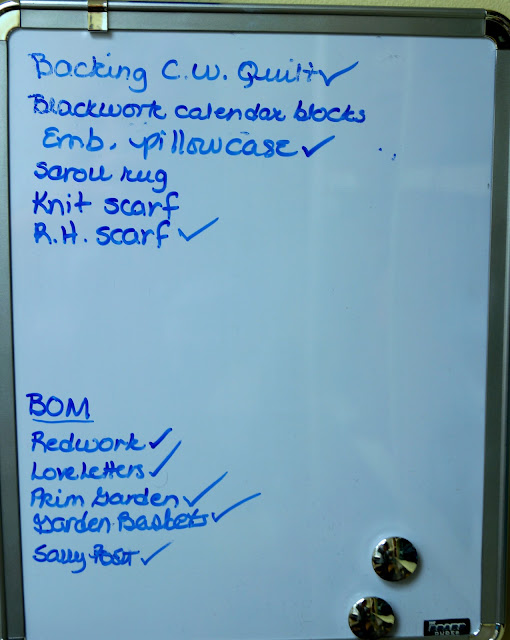 Backing C.W. Quilt ✓
Blackwork calendar blocks
Emb. pillowcase ✓
Scroll rug
Knit scarf
R.H. scarf ✓
BOM
Redwork ✓
Love Letters ✓
Prim Garden ✓
Garden Baskets ✓
Sally Post ✓
THE BOARD
DUDES